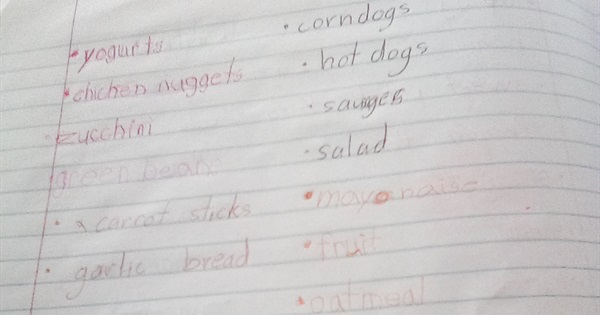 • yogurts
• chichen nuggets
• zucchini
green bean
• carrot sticks
• garlic bread
• corndogs
• hot dogs
• sauages
• salad
• mayonaise
• fruit
• oatmeal